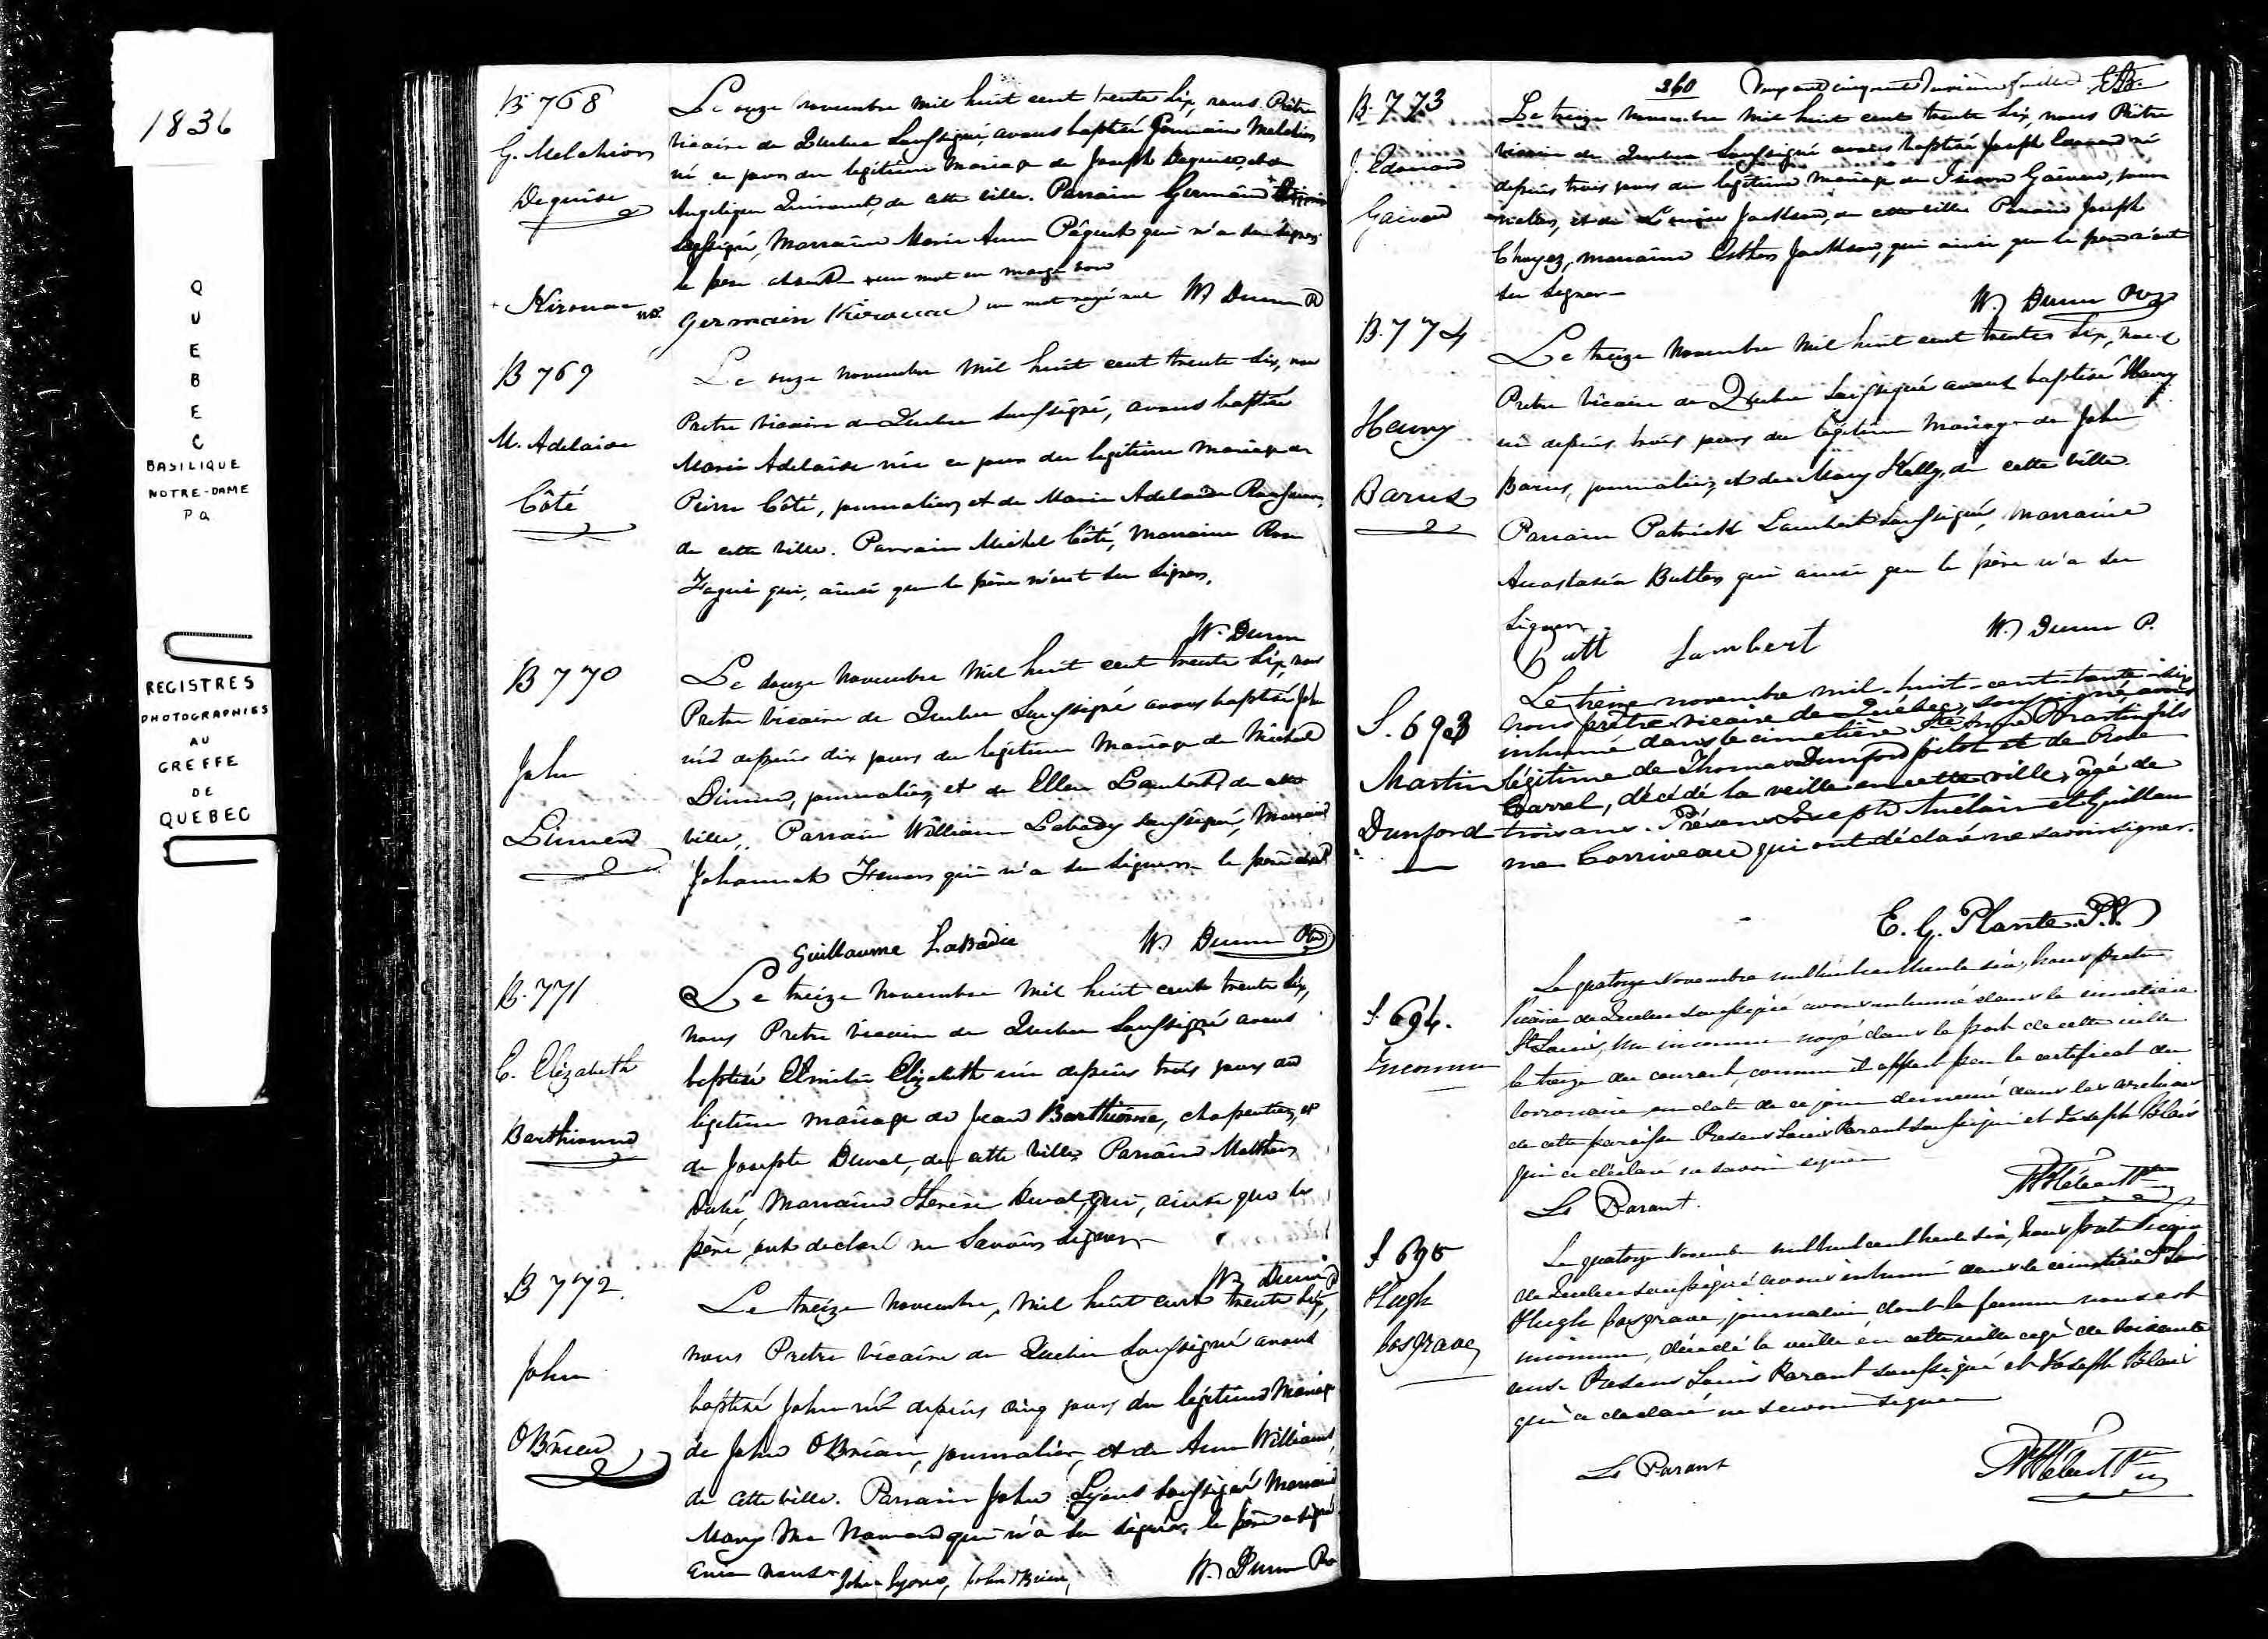 1836
QUEBEC
BASILIQUE
NOTRE-DAME
PQ
REGISTRES
PHOTOGRAPHIES
AU
GREFFE
DE
QUEBEC
B 768
G. Melchior
Deguise
+ Kirouac
Le onze novembre mil huit cent trente six, nous Prêtre
vicaire de Quebec soussigné, avons baptisé Germain Melchior
né ce jour du légitime mariage de Joseph Deguise, et de
Angelique, de cette ville. Parrain Germain +
soussigné, Marraine Marie Ann qui n'a su signer
le père absent + un mot en marge bon
Germain Kirouac un mot rayé nul W Dunn P
B 769
M. Adelaide
Côté
Le onze novembre mil huit cent trente six, nous
Pretre vicaire de Quebec soussigné, avons baptisé
Marie Adelaide née ce jour du legitime mariage de
Pierre Côté, journalier, et de Marie Adelaide
de cette ville. Parrain Michel Côté, Marraine Rose
qui, ainsi que le père n'ont su signer.
W. Dunn
B 770
John
Le douze novembre mil huit cent trente six, nous
Pretre vicaire de Quebec soussigné avons baptisé John
né depuis dix jours du legitime mariage de Michael
journalier, et de Ellen Lambert, de cette
ville. Parrain William Labady soussigné, Marraine
Johannah qui n'a su signer le père absent
Guillaume LaBadie W. Dunn Ptre
B. 771
E. Elizabeth
Barthiaume
Le treize novembre mil huit cent trente six,
nous Pretre vicaire de Quebec soussigné avons
baptisé Emilie Elizabeth née depuis trois jours du
legitime mariage de Jean Barthiaume, charpentier, et
de Josephte Duval, de cette ville Parrain Mathew
Dubé, Marraine Therese Duval, qui, ainsi que le
père, ont declaré ne savoir signer
W. Dunn P
B 772.
John
OBrien
Le treize novembre, mil huit cent trente six,
nous Pretre vicaire de Quebec soussigné avons
baptisé John né depuis cinq jours du légitime mariage
de John OBrien, journalier, et de Ann Williams,
de cette ville. Parrain John Lyons soussigné Marraine
Mary Mc Namara qui n'a su signer, le père a signé
avec nous John Lyons, John OBrien, W. Dunn Ptre
360 Deux cent cinquante feuillet
B. 773
J. Edouard
Le treize novembre mil huit cent trente six, nous Prêtre
vicaire de Quebec soussigné avons baptisé Joseph Edouard né
depuis trois jours du légitime mariage de, jour
nalier, et de Jackson, de cette ville Parrain Joseph
marraine Esther Jackson, qui ainsi que le père n'ont
su signer
W. Dunn Ptre
B. 774
Henry
Barns
Le treize novembre mil huit cent trente six, nous
Pretre vicaire de Quebec soussigné avons baptisé Henry
né depuis trois jours du légitime mariage de John
Barns, journalier, et de Mary Kelly, de cette ville.
Parrain Patrick Lambert soussigné, marraine
Anastasia Butler, qui ainsi que le père n'a su
signer.
Patt Lambert W. Dunn P.
S. 693
Martin
Dunford
Le treize novembre mil-huit-cent-trente-six
nous prêtre vicaire de Québec, soussigné, avons
inhumé dans le cimetière Ste Anne Martin fils
légitime de Thomas Dunford pilot et de Rose
Carrel, décédé la veille en cette ville, âgé de
trois ans. Présens Joseph Auclair et Guillau
me Corriveau qui ont déclaré ne savoir signer.
E. G. Plante. P.V.
S. 694.
Inconnu
Le quatorze Novembre mil huit cent trente six, nous pretre
vicaire de Quebec soussigné avons inhumé dans le cimetiere
St Louis, un inconnu noyé dans le port de cette ville
le treize du courant, comme il appert par le certificat du
corronaire en date de ce jour demeuré dans les archives
de cette paroisse Presens Louis Parant soussigné et Joseph Blais
qui a déclaré ne savoir signer
Ls Parant.
S 695
Hugh
Cosgrave
Le quatorze Novembre mil huit cent trente six, nous pretre vicaire
de Quebec soussigné avons inhumé dans le cimetiere St Louis
Hugh Cosgrave, journalier, dont la femme nous est
inconnue, décédé la veille en cette ville agé de soixante
ans. Presens Louis Parant soussigné et Joseph Blais
qui a declaré ne savoir signer
Ls Parant